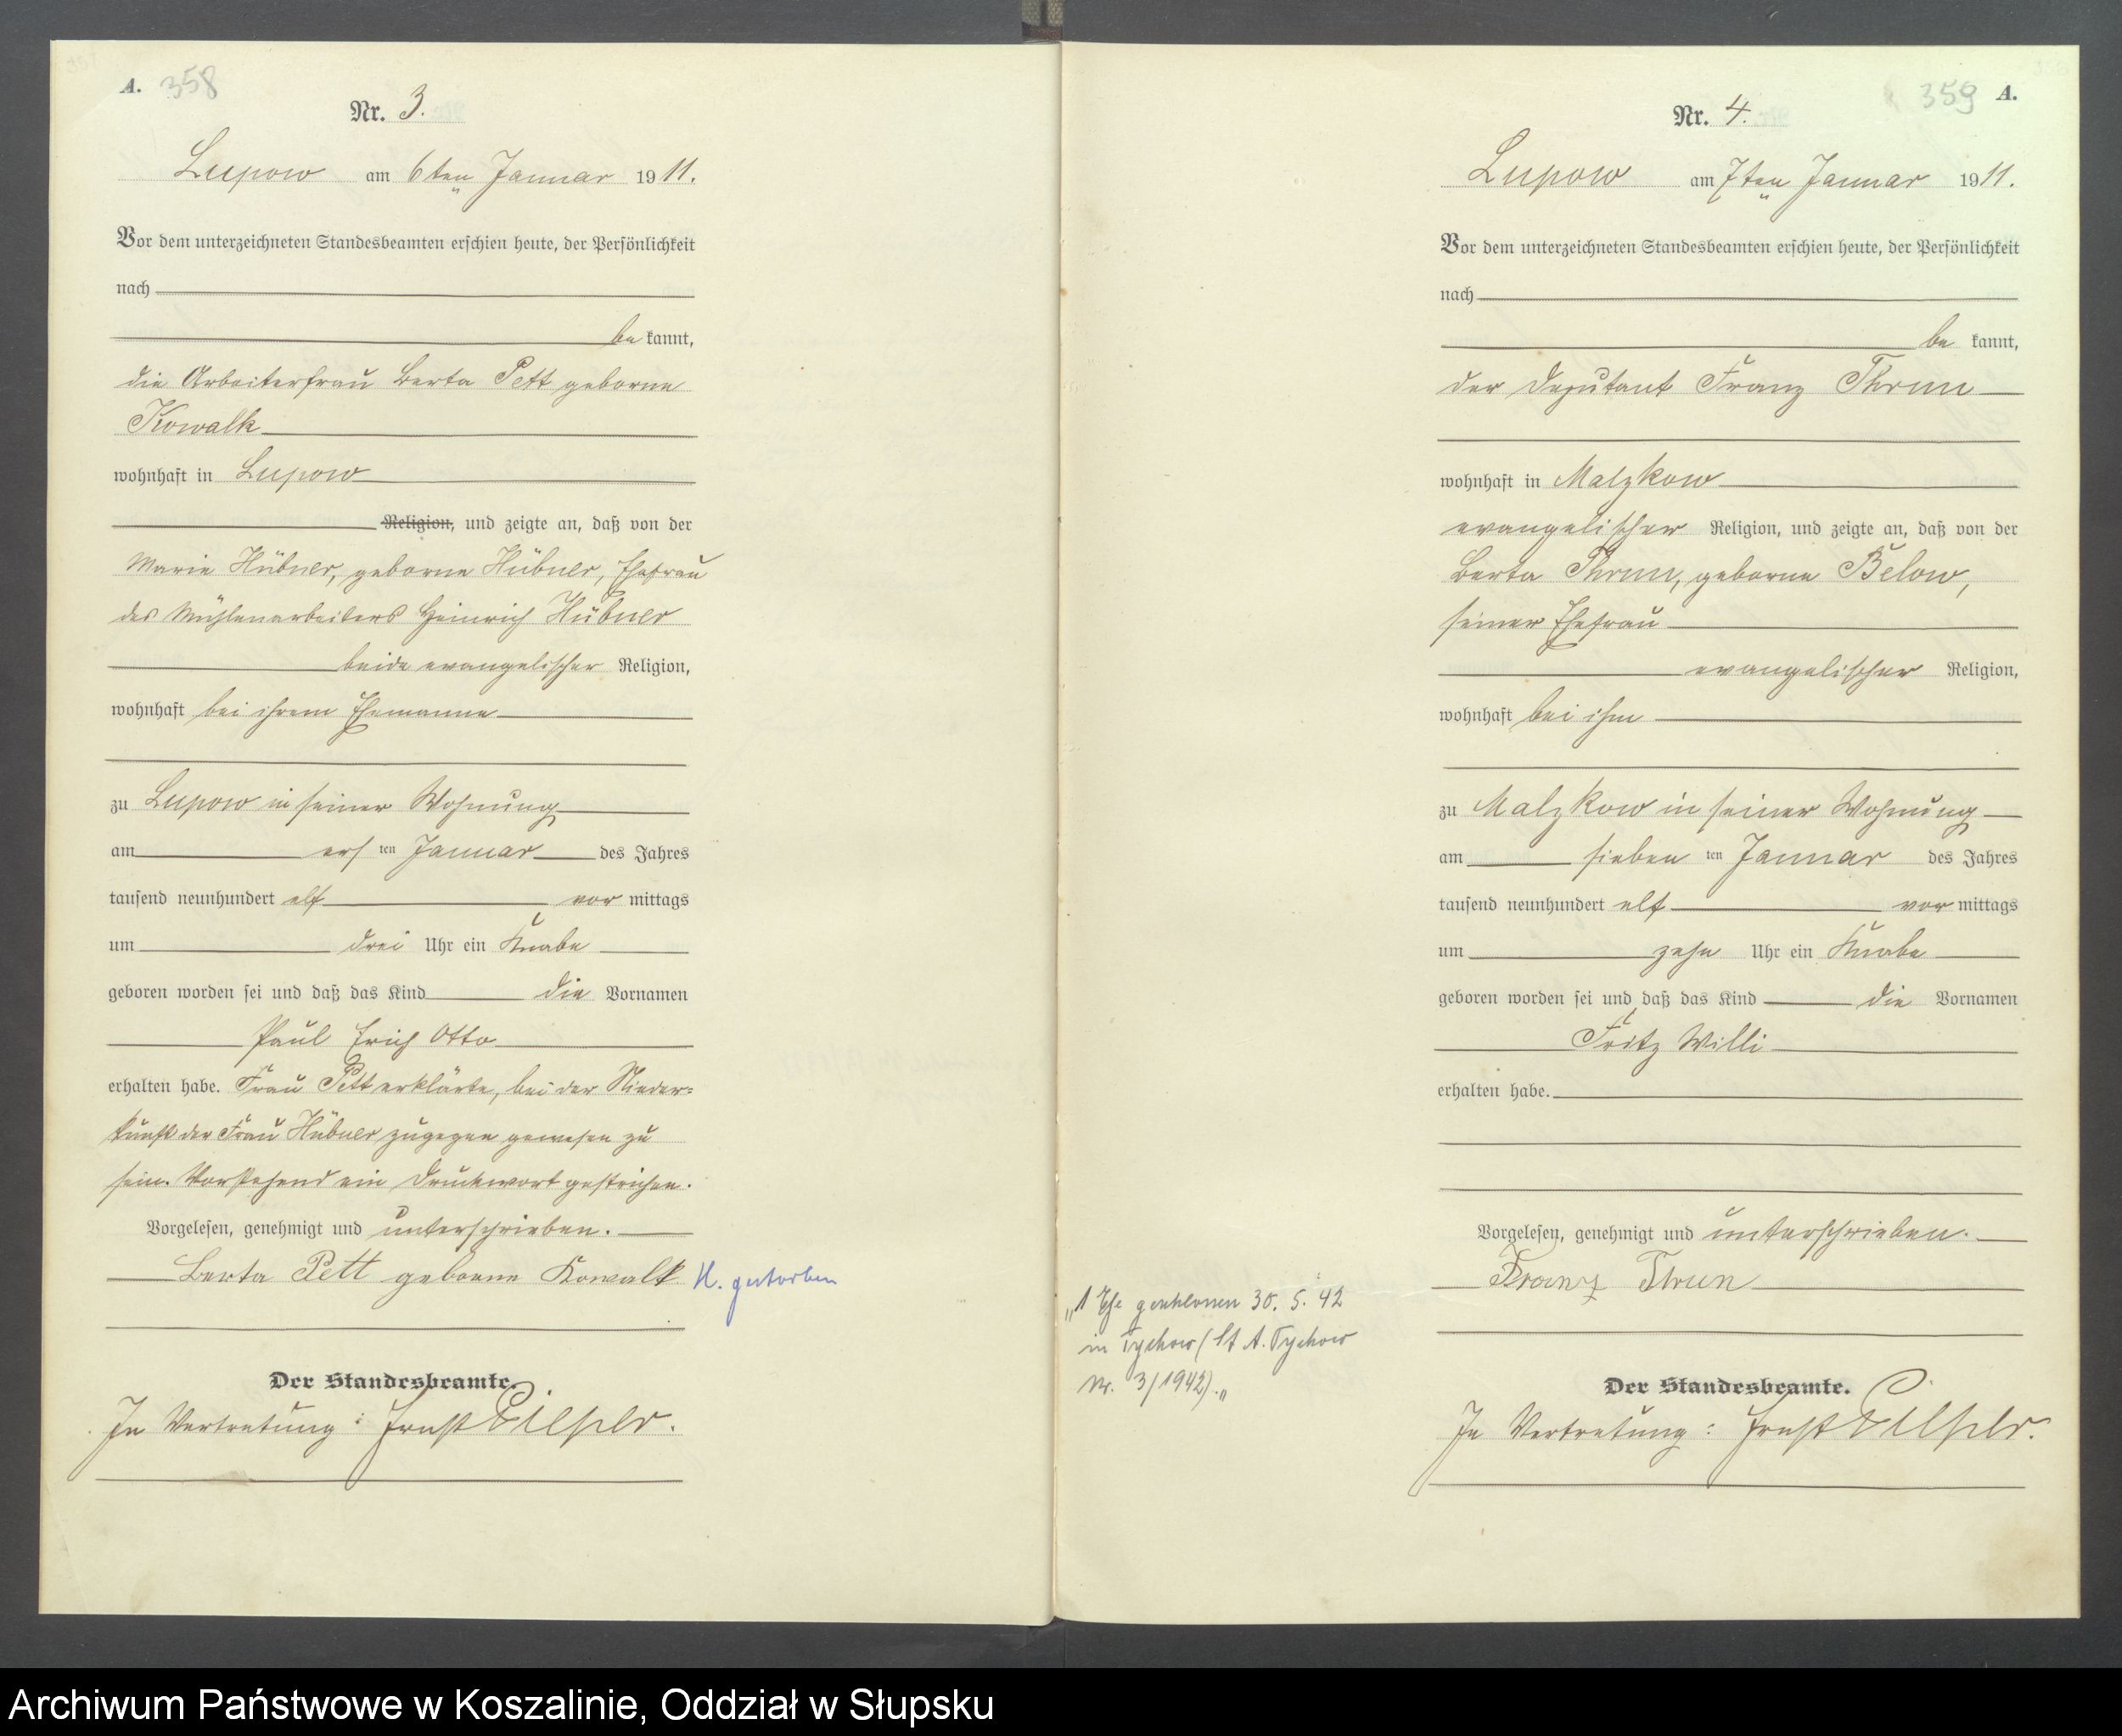 A. 358
Nr. 3.
Lupow am 6ten Januar 1911.
Vor dem unterzeichneten Standesbeamten erschien heute, der Persönlichkeit
nach
be kannt,
die Arbeiterfrau Berta Pett geborne
Kowalk
wohnhaft in Lupow
Religion, und zeigte an, daß von der
Marie Hübner, geborne Hübner, Ehefrau
des Mühlenarbeiters Heinrich Hübner
beide evangelischer Religion,
wohnhaft bei ihrem Ehemanne
zu Lupow in seiner Wohnung
am ersten Januar des Jahres
tausend neunhundert elf vor mittags
um drei Uhr ein Knabe
geboren worden sei und daß das Kind die Vornamen
Paul Erich Otto
erhalten habe. Frau Pett erklärte, bei der Nieder=
kunft der Frau Hübner zugegen gewesen zu
sein. Vorstehend ein Druckwort gestrichen.
Vorgelesen, genehmigt und unterschrieben.
Berta Pett geborne Kowalk
H. gestorben
Der Standesbeamte.
In Vertretung: Ernst
359 A.
Nr. 4.
Lupow am 7ten Januar 1911.
Vor dem unterzeichneten Standesbeamten erschien heute, der Persönlichkeit
nach
be kannt,
der Deputant Franz Thrun
wohnhaft in Malzkow
evangelischer Religion, und zeigte an, daß von der
Berta Thrun, geborne Below,
seiner Ehefrau
evangelischer Religion,
wohnhaft bei ihm
zu Malzkow in seiner Wohnung
am siebenten Januar des Jahres
tausend neunhundert elf vor mittags
um zehn Uhr ein Knabe
geboren worden sei und daß das Kind die Vornamen
Fritz Willi
erhalten habe.
Vorgelesen, genehmigt und unterschrieben.
Franz Thrun
„1 Ehe geschlossen 30. 5. 42
in Tychow (St A. Tychow
Nr. 3/1942).„
Der Standesbeamte.
In Vertretung: Ernst
Archiwum Państwowe w Koszalinie, Oddział w Słupsku